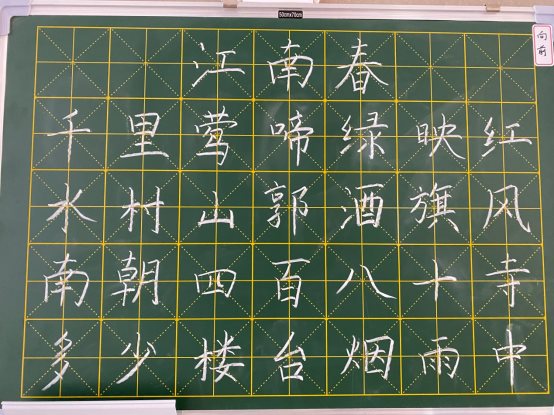 50cmx70cm
向前
江南春
千里莺啼绿映红
水村山郭酒旗风
南朝四百八十寺
多少楼台烟雨中